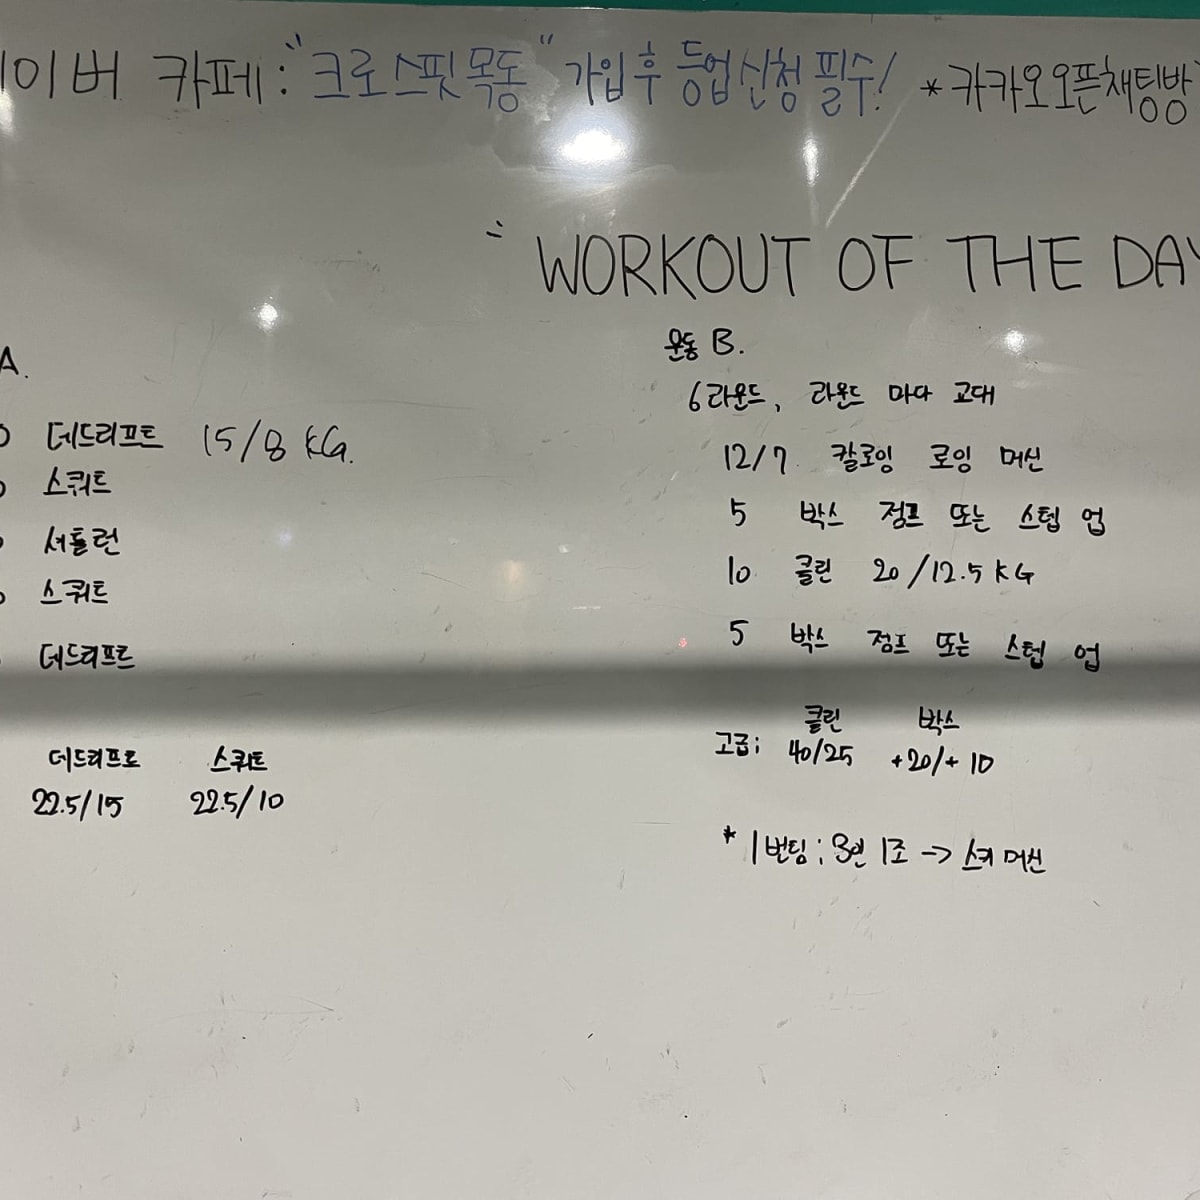 이버 카페: "크로스핏 목동" 가입 후 등업신청 필수! *카카오오픈채팅방
" WORKOUT OF THE DAY
A.
데드리프트 15/8 KG.
스쿼트
셔틀런
스쿼트
데드리프트
데드리프트 스쿼트
22.5/15 22.5/10
운동 B.
6라운드, 라운드 마다 교대
12/7 칼로잉 로잉 머신
5 박스 점프 또는 스텝 업
10 클린 20/12.5 KG
5 박스 점프 또는 스텝 업
클린 박스
고급; 40/25 +20/+10
* 1번팅; 3인 1조 -> 스키 머신